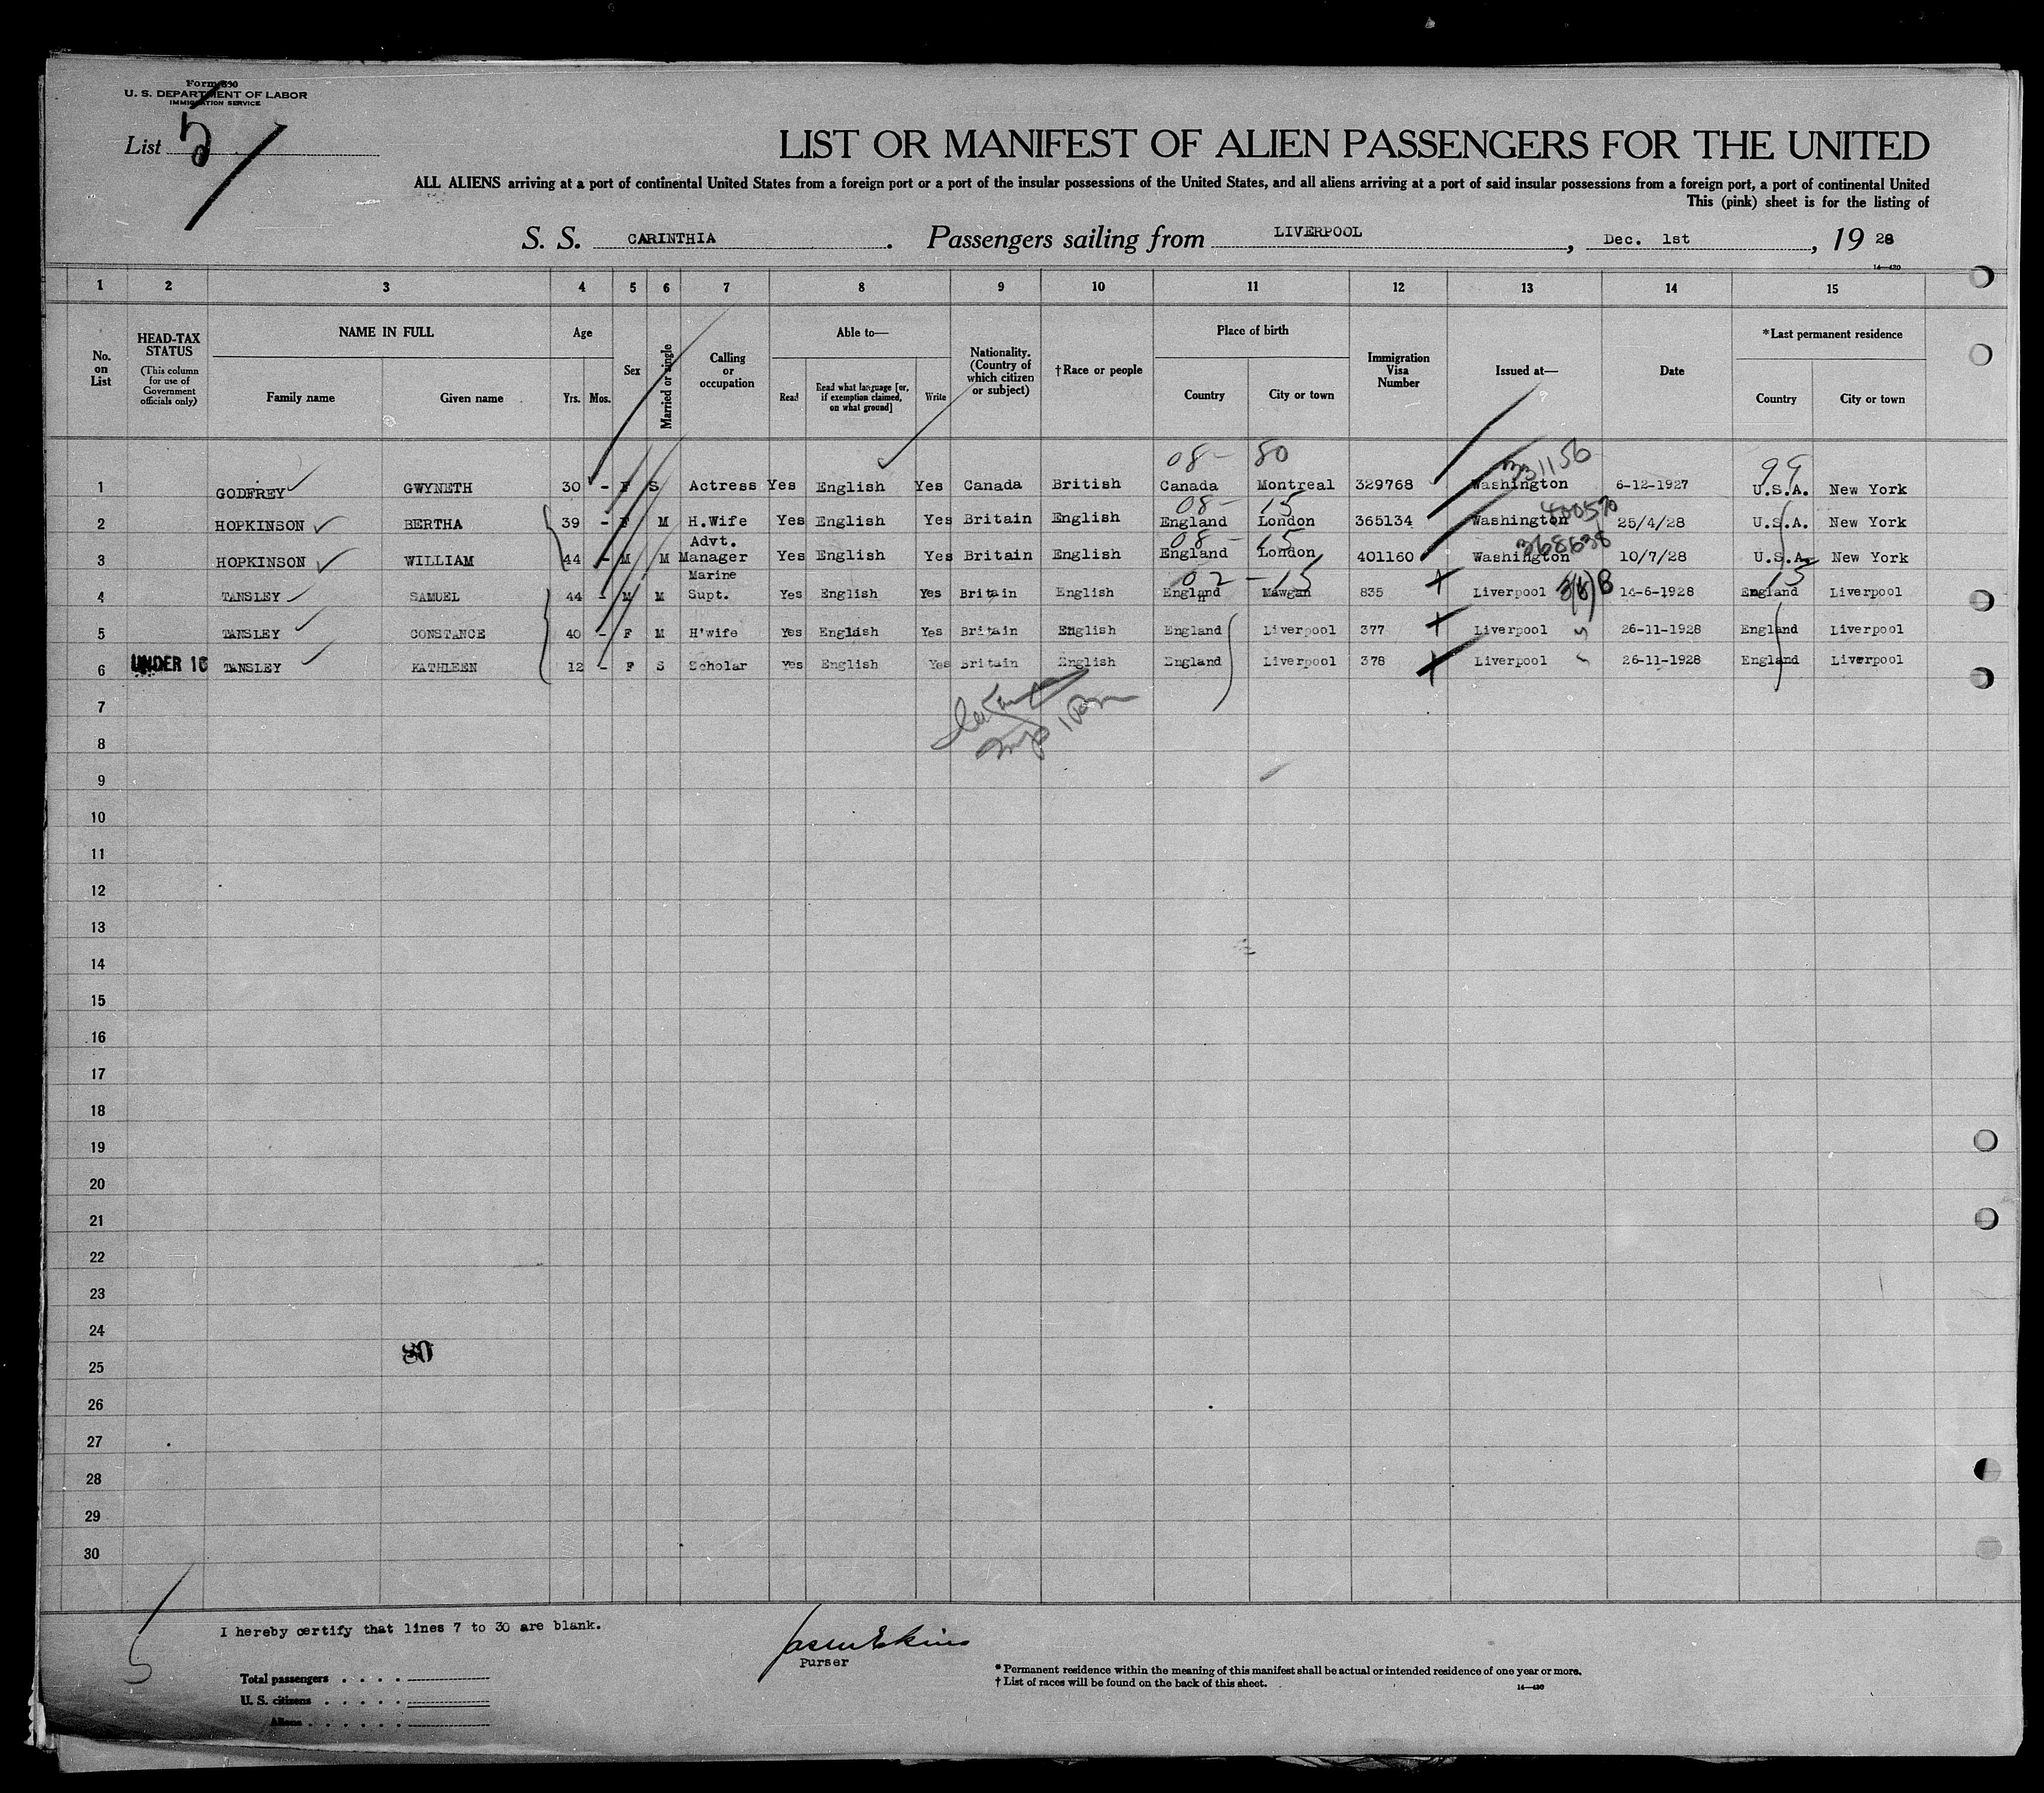 Form 630
U. S. DEPARTMENT OF LABOR
IMMIGRATION SERVICE
List 5
LIST OR MANIFEST OF ALIEN PASSENGERS FOR THE UNITED
ALL ALIENS arriving at a port of continental United States from a foreign port or a port of the insular possessions of the United States, and all aliens arriving at a port of said insular possessions from a foreign port, a port of continental United
This (pink) sheet is for the listing of
S. S. CARINTHIA. Passengers sailing from LIVERPOOL, Dec. 1st, 19 28
14—430
1 2 3 4 5 6 7 8 9 10 11 12 13 14 15
No. on List HEAD-TAX STATUS (This column for use of Government officials only) NAME IN FULL Family name Given name Age Yrs. Mos. Sex Married or single Calling or occupation Able to— Read Read what language [or, if exemption claimed, on what ground] Write Nationality. (Country of which citizen or subject) †Race or people Place of birth Country City or town Immigration Visa Number Issued at— Date *Last permanent residence Country City or town
08- 80 331156 99
1 GODFREY GWYNETH 30 - F S Actress Yes English Yes Canada British Canada Montreal 329768 Washington 6-12-1927 U.S.A. New York
08- 15 400570
2 HOPKINSON BERTHA 39 - F M H.Wife Yes English Yes Britain English England London 365134 Washington 25/4/28 U.S.A. New York
08- 15 368638
3 HOPKINSON WILLIAM 44 - M M Advt. Manager Yes English Yes Britain English England London 401160 Washington 10/7/28 U.S.A. New York
02-15 15
4 TANSLEY SAMUEL 44 - M M Marine Supt. Yes English Yes Britain English England Mawgan 835 Liverpool 14-6-1928 England Liverpool
5 TANSLEY CONSTANCE 40 - F M H'wife Yes English Yes Britain English England Liverpool 377 Liverpool 26-11-1928 England Liverpool
6 UNDER 16 TANSLEY KATHLEEN 12 - F S Scholar Yes English Yes Britain English England Liverpool 378 Liverpool 26-11-1928 England Liverpool
7
8
9
10
11
12
13
14
15
16
17
18
19
20
21
22
23
24
25
26
27
28
29
30
I hereby certify that lines 7 to 30 are blank.
5
Purser
Total passengers
U. S. citizens
Aliens
* Permanent residence within the meaning of this manifest shall be actual or intended residence of one year or more.
† List of races will be found on the back of this sheet.
14—430